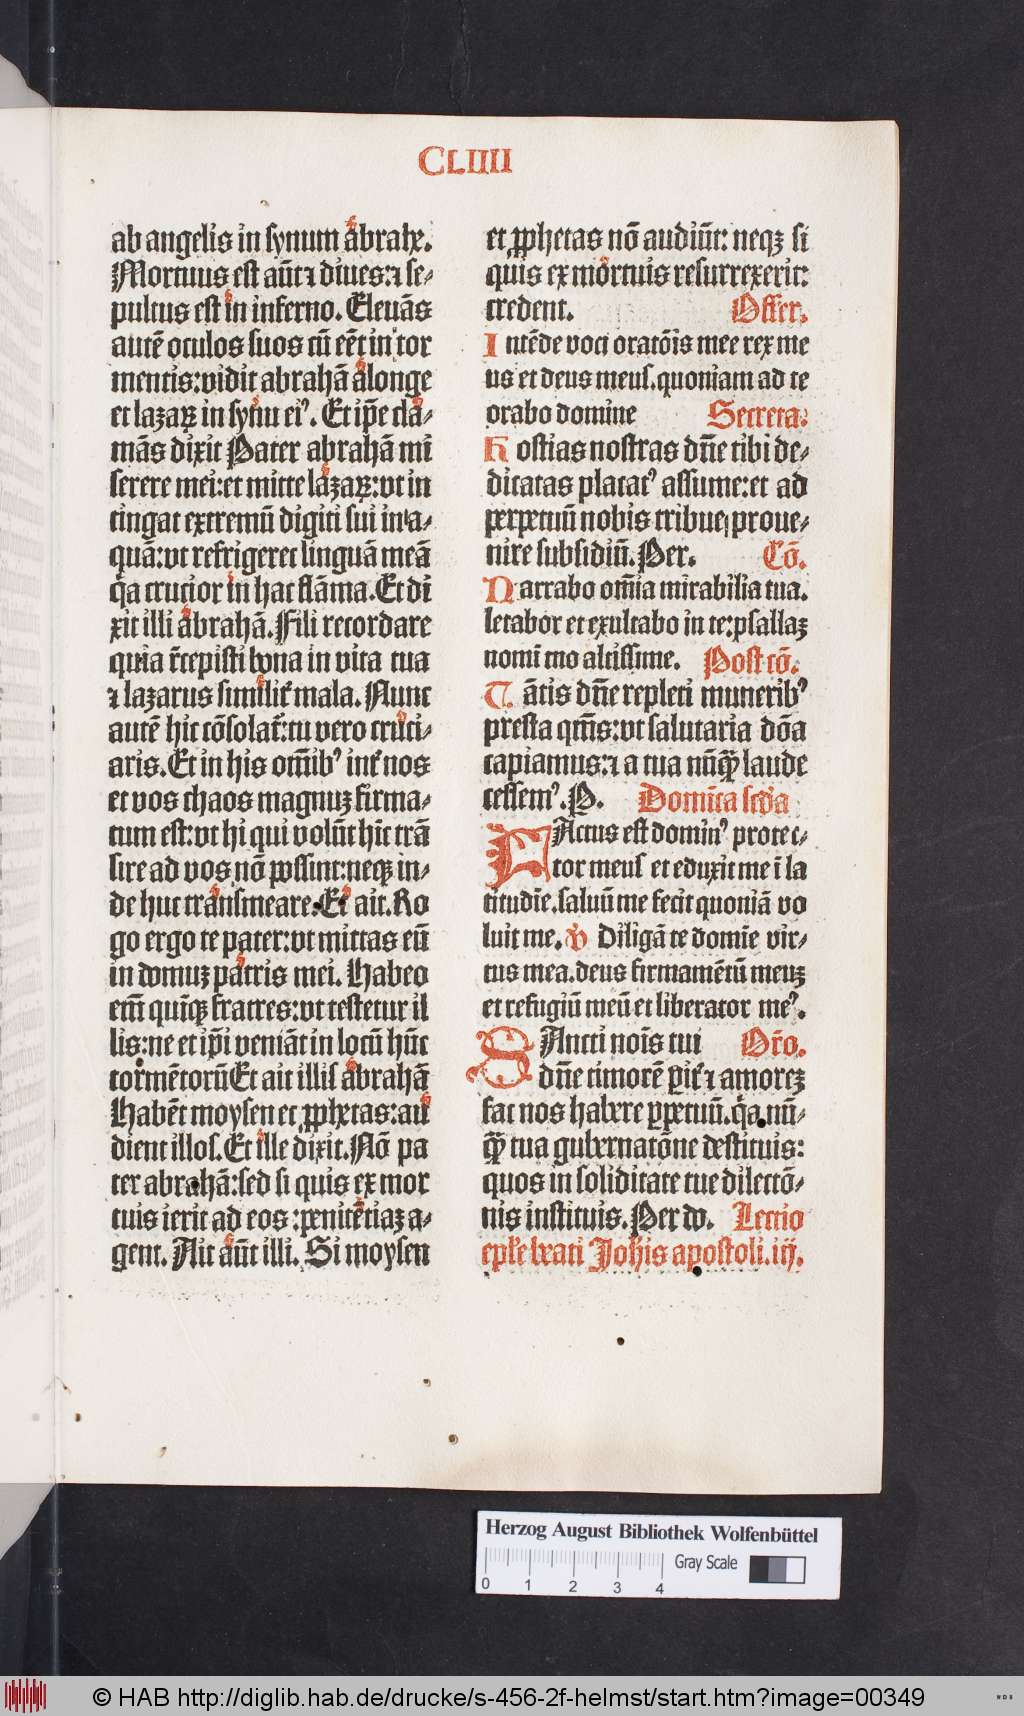 CLIIII
ab angelis in synum abrahe.
Mortuus est aūt ⁊ diues:⁊ se-
pultus est in inferno. Eleuās
autē oculos suos cū eēt in tor
mentis:vidit abrahā alonge
et lazaꝝ in synu eiꝰ. Et ip̄e cla-
māns dixit Pater abrahā mi
serere mei:et mitte lazaꝝ:vt in
tingat extremū digiti sui in a-
quā:vt refrigeret linguā meā
q̄a crucior in hac flāma. Et di
xit illi abrahā. Fili recordare
quia r̄cepisti bona in vita tua
⁊ lazarus similit̄ mala. Nunc
autē hic cōsolat̄:tu vero cruci-
aris. Et in his om̄ibꝰ int̄ nos
et vos chaos magnuȝ firma-
tum est:vt hi qui volūt hīc trā
sire ad vos nō possint:neqȝ in-
de huc transmeare. Et ait. Ro
go ergo te pater:vt mittas eū
in domuȝ patris mei. Habeo
em̄ quīqȝ fratres:vt testetur il
lis:ne et ip̄i veniāt in locū hūc
tormētorū Et ait illis abrahā
Habēt moysen et ꝓphetas:au
dient illos. Et ille dixit. Nō pa
ter abrahā:sed si quis ex mor
tuis ierit ad eos :penitētiaȝ a-
gent. Ait aūt illi. Si moysen
et ꝓphetas nō audiūt: neqȝ si
quis ex mortuis resurrexerit:
credent. Offer.
Intēde voci oratōis mee rex me
us et deus meus.quoniam ad te
orabo domine Secreta:
Hostias nostras dn̄e tibi de-
dicatas placatꝰ assume:et ad
perpetuū nobis tribue proue-
nire subsidiū. Per. Cō.
Narrabo om̄ia mirabilia tua.
letabor et exultabo in te:psallaȝ
nomi tuo altissime. Post cō.
Tātis dn̄e repleti muneribꝰ
presta qm̄s:vt salutaria dōa
capiamus:⁊ a tua nūꝙ̄ laude
cessemꝰ. P. Domīca scd̄a
FActus est dominꝰ protec-
tor meus et eduxit me ī la
titudīe.saluū me fecit quoniā vo
luit me. ℣ Diligā te domīe vir-
tus mea.deus firmamētū meuȝ
et refugiū meū et liberator meꝰ.
SAncti noīs tui Or̄o.
dn̄e timorē ꝑit̄ ⁊ amoreȝ
fac nos habere ꝑpetuū.q̄a nū-
ꝙ̄ tua gubernatōne destituis:
quos in soliditate tue dilectō-
nis instituis. Per do. Lectio
ep̄le beati Joh̄is apostoli.iij.
Herzog August Bibliothek Wolfenbüttel
Gray Scale
0 1 2 3 4
© HAB http://diglib.hab.de/drucke/s-456-2f-helmst/start.htm?image=00349